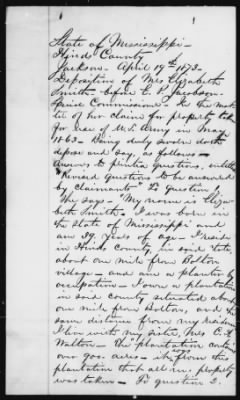 1
State of Mississippi -
Hinds County
Jackson - April 19th 1873 -
Deposition of Mrs Elizabeth
Smith - before E. P. Jacobson -
Special Commissioner - In the mat-
ter of her claim for property taken
for use of U.S. Army in May
1863 - Being duly sworn doth
depose and say, as follows -
Answers to printed questions, entitled
"Revised Questions to be answered
by claimants" To Question 1
She says - "My name is Eliza-
beth Smith - I was born in
the State of Mississippi and
am 39 years of age - I reside
in Hinds county in said state
about one mile from Bolton
village - and am a planter by
occupation - I own a plantation
in said county situated about
one mile from Bolton, and the
same distance from my residence
I live with my sister, Mrs C.
Walton - The plantation contains
over 900. acres - It was from this
plantation that all my property
was taken - To question 2.